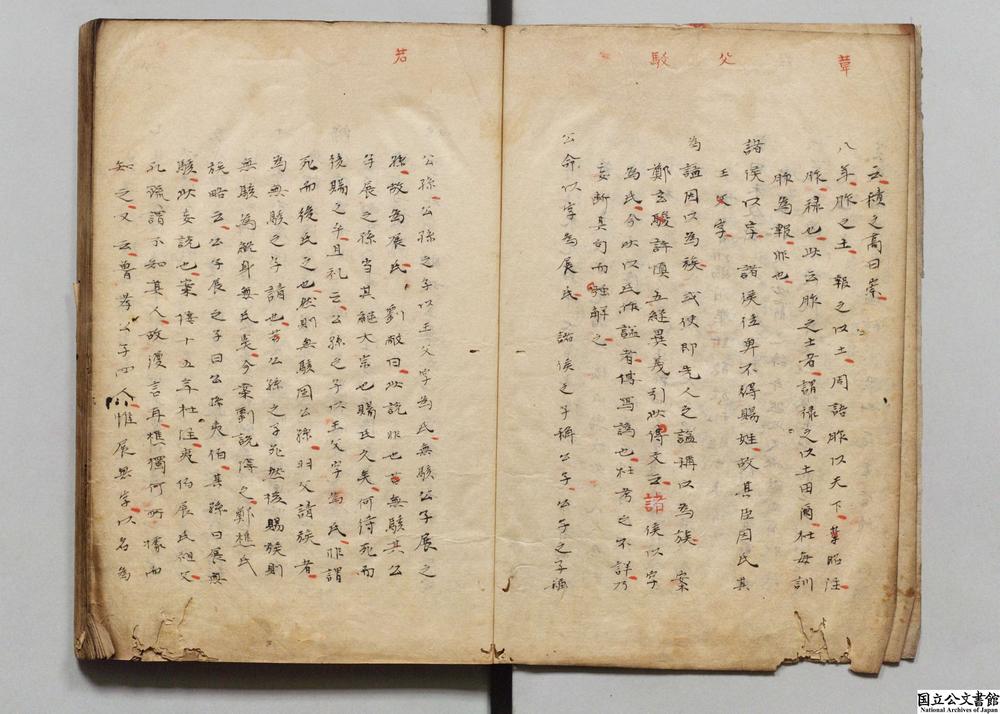 葦
父
駁
云積之高曰崇
八年胙之土 報之以土 周語胙以天下葦昭注
胙禄也此云胙之土者謂禄之以土田爾杜每訓
胙為報非也
諸侯以字 諸侯位卑不得賜姓故其臣因氏其
王父字
為謚因以為族 或使即先人之謚稱以為族 案
鄭玄駁許慎五経異義引此傳文云諸侯以字
為氏今此以氏作謚者傳寫譌也杜考之不詳乃
妄斷其句而強解之
公命以字為展氏 諸侯之子稱公子公子之子稱
若
公孫公孫之子以王父字為氏無駭公子展之
孫故為展氏 劉敞曰此説非也若無駭真公
子展之孫當其繼大宗也賜氏久矣何待死而
後賜之乎且礼云公孫之子以王父字為氏非謂
死而後氏之也然則無駭固公孫羽父請族者
為無駭之子請也若公孫之子死然後賜族則
無駭為終身無氏矣今案劉説得之鄭樵氏
族略云公子展之子曰公孫夷伯其孫曰展無
駭此妄説也案僖十五年杜注夷伯展氏祖父
孔疏謂不知某人故漫言再樵獨何所據而
知之又云魯孝公子四人惟展無字以名為
国立公文書館
National Archives of Japan